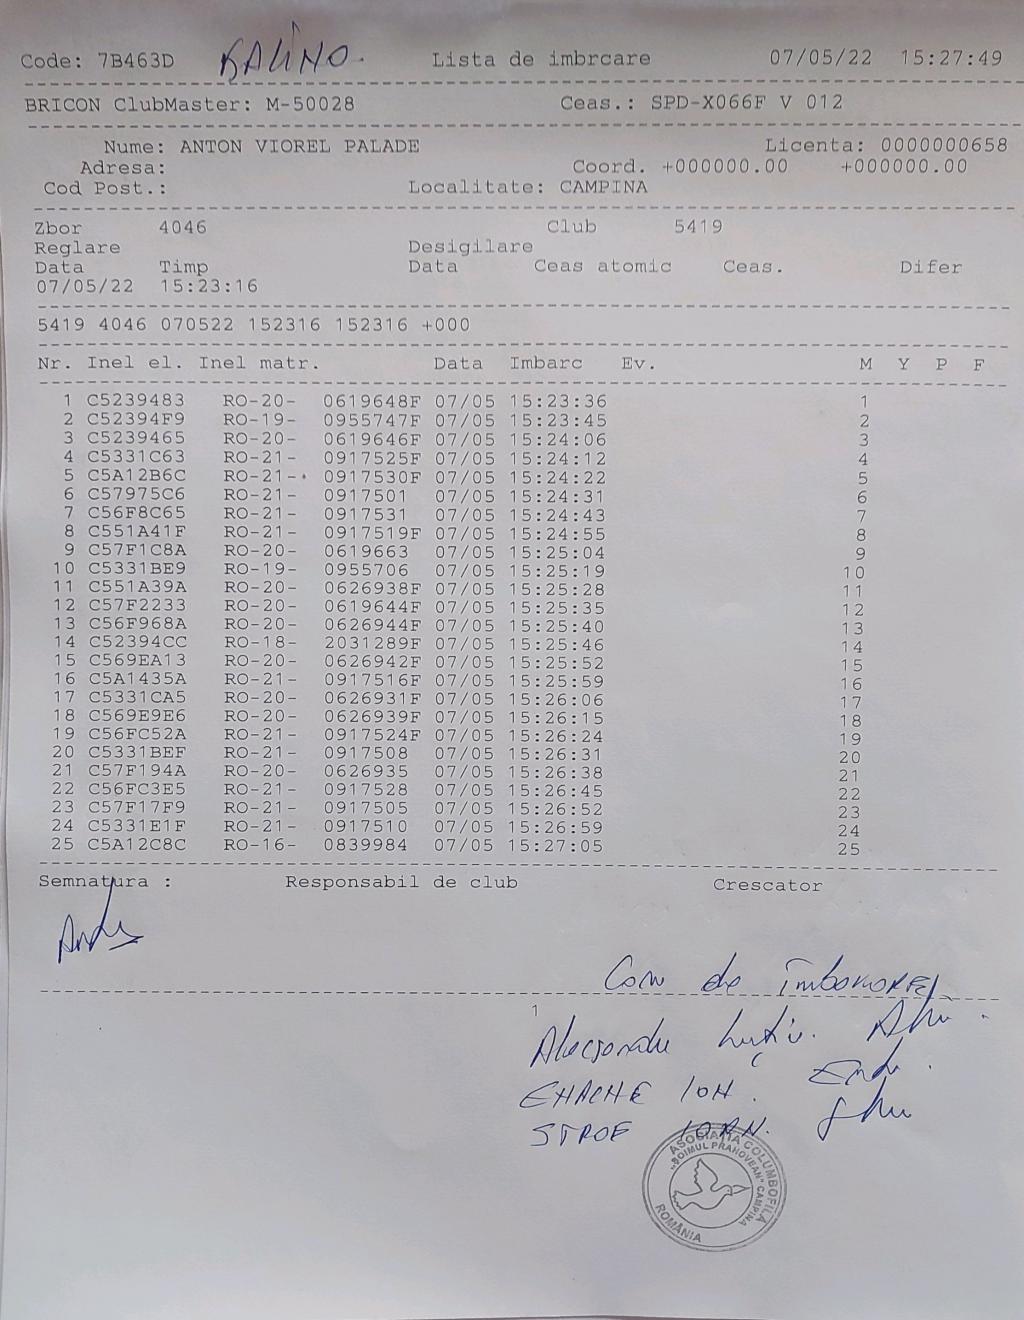 Code: 7B463D BALINO. Lista de imbrcare 07/05/22 15:27:49
BRICON ClubMaster: M-50028 Ceas.: SPD-X066F V 012
Nume: ANTON VIOREL PALADE Licenta: 0000000658
Adresa: Coord. +000000.00 +000000.00
Cod Post.: Localitate: CAMPINA
Zbor 4046 Club 5419
Reglare Desigilare
Data Timp Data Ceas atomic Ceas. Difer
07/05/22 15:23:16
5419 4046 070522 152316 152316 +000
Nr. Inel el. Inel matr. Data Imbarc Ev. M Y P F
1 C5239483 RO-20- 0619648F 07/05 15:23:36 1
2 C52394F9 RO-19- 0955747F 07/05 15:23:45 2
3 C5239465 RO-20- 0619646F 07/05 15:24:06 3
4 C5331C63 RO-21- 0917525F 07/05 15:24:12 4
5 C5A12B6C RO-21- 0917530F 07/05 15:24:22 5
6 C57975C6 RO-21- 0917501 07/05 15:24:31 6
7 C56F8C65 RO-21- 0917531 07/05 15:24:43 7
8 C551A41F RO-21- 0917519F 07/05 15:24:55 8
9 C57F1C8A RO-20- 0619663 07/05 15:25:04 9
10 C5331BE9 RO-19- 0955706 07/05 15:25:19 10
11 C551A39A RO-20- 0626938F 07/05 15:25:28 11
12 C57F2233 RO-20- 0619644F 07/05 15:25:35 12
13 C56F968A RO-20- 0626944F 07/05 15:25:40 13
14 C52394CC RO-18- 2031289F 07/05 15:25:46 14
15 C569EA13 RO-20- 0626942F 07/05 15:25:52 15
16 C5A1435A RO-21- 0917516F 07/05 15:25:59 16
17 C5331CA5 RO-20- 0626931F 07/05 15:26:06 17
18 C569E9E6 RO-20- 0626939F 07/05 15:26:15 18
19 C56FC52A RO-21- 0917524F 07/05 15:26:24 19
20 C5331BEF RO-21- 0917508 07/05 15:26:31 20
21 C57F194A RO-20- 0626935 07/05 15:26:38 21
22 C56FC3E5 RO-21- 0917528 07/05 15:26:45 22
23 C57F17F9 RO-21- 0917505 07/05 15:26:52 23
24 C5331E1F RO-21- 0917510 07/05 15:26:59 24
25 C5A12C8C RO-16- 0839984 07/05 15:27:05 25
Semnatura : Responsabil de club Crescator
de
1
ENACHE ION.
STROE IOAN.
ASOCIATIA COLUMBOFILA
"SOIMUL PRAHOVEAN" CAMPINA
ROMÂNIA